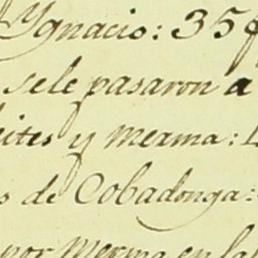 Ygnacio: 35
sele pasaron a
y merma:
de Cobadonga:
por Merma en la